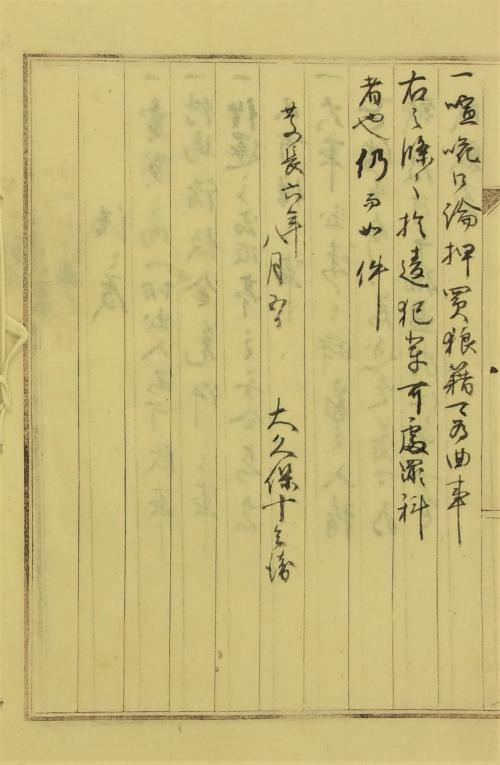 一喧𠵅口論押買狼藉可為曲事
右之條々於違犯輩可處罪科
者也仍而如件
慶長六年八月
大久保十兵衛